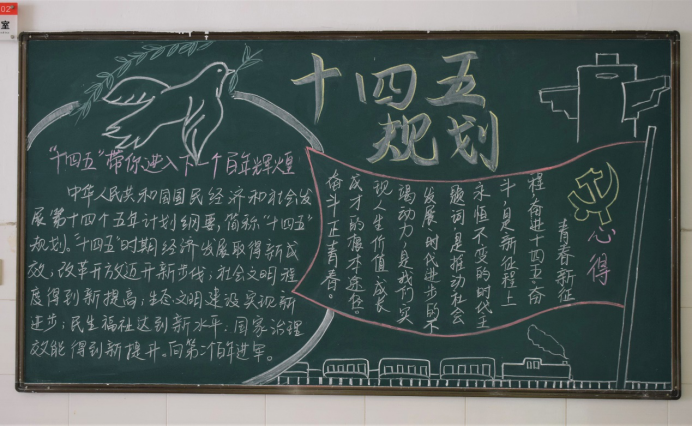 02
室
十四五
规划
"十四五"带你进入下一个百年辉煌
中华人民共和国国民经济和社会发
展第十四个五年计划纲要，简称"十四五"
规划。"十四五"时期经济发展取得新成
效，改革开放迈开新步伐；社会文明程
度得到新提高；生态文明建设实现新
进步；民生福祉达到新水平；国家治理
效能得到新提升。向第二个百年进军。
心得
青春新征
程，奋进十四五。奋
斗，是新征程上
永恒不变的时代主
题词，是推动社会
发展、时代进步的不
竭动力，是我们实
现人生价值、成长
成才的根本途径。
奋斗正青春。